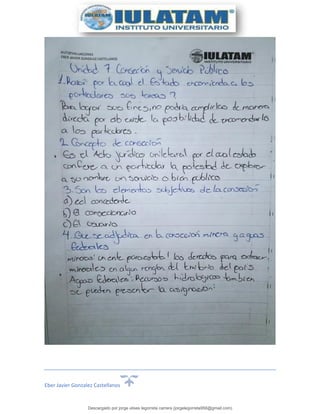 IULATAM
INSTITUTO UNIVERSITARIO
AUTOEVALUACIONES
EBER JAVIER GONZALEZ CASTELLANOS
IULATAM
INSTITUTO UNIVERSITARIO
Unidad 7 Concesión y Servicio Público
1. Razón por la cual el Estado encomienda a los
particulares sus tareas?
Para lograr sus fines, no podría cumplirlos de manera
directa por ab existe la posibilidad de encomendarlo
a los particulares.
2. Concepto de concesión
Es el Acto jurídico unilateral por el cual estado
confiere a un particular la potestad de explotar
a su nombre un servicio o bien público
3. Son los elementos subjetivos de la concesión
a) el concedente
b) El concesionario
c) El Usuario
4. Que se adjudica en la concesión minera y aguas
federales
mineras: un ente paraestatal los derechos para extraer
minerales en algun renglon del territorio del país
Aguas federales: Recursos hidrologicos tambien
se pueden presentar la asignación:
Eber Javier Gonzalez Castellanos
Descargado por jorge elises legorreta carrera (jorgelegorreta958@gmail.com)